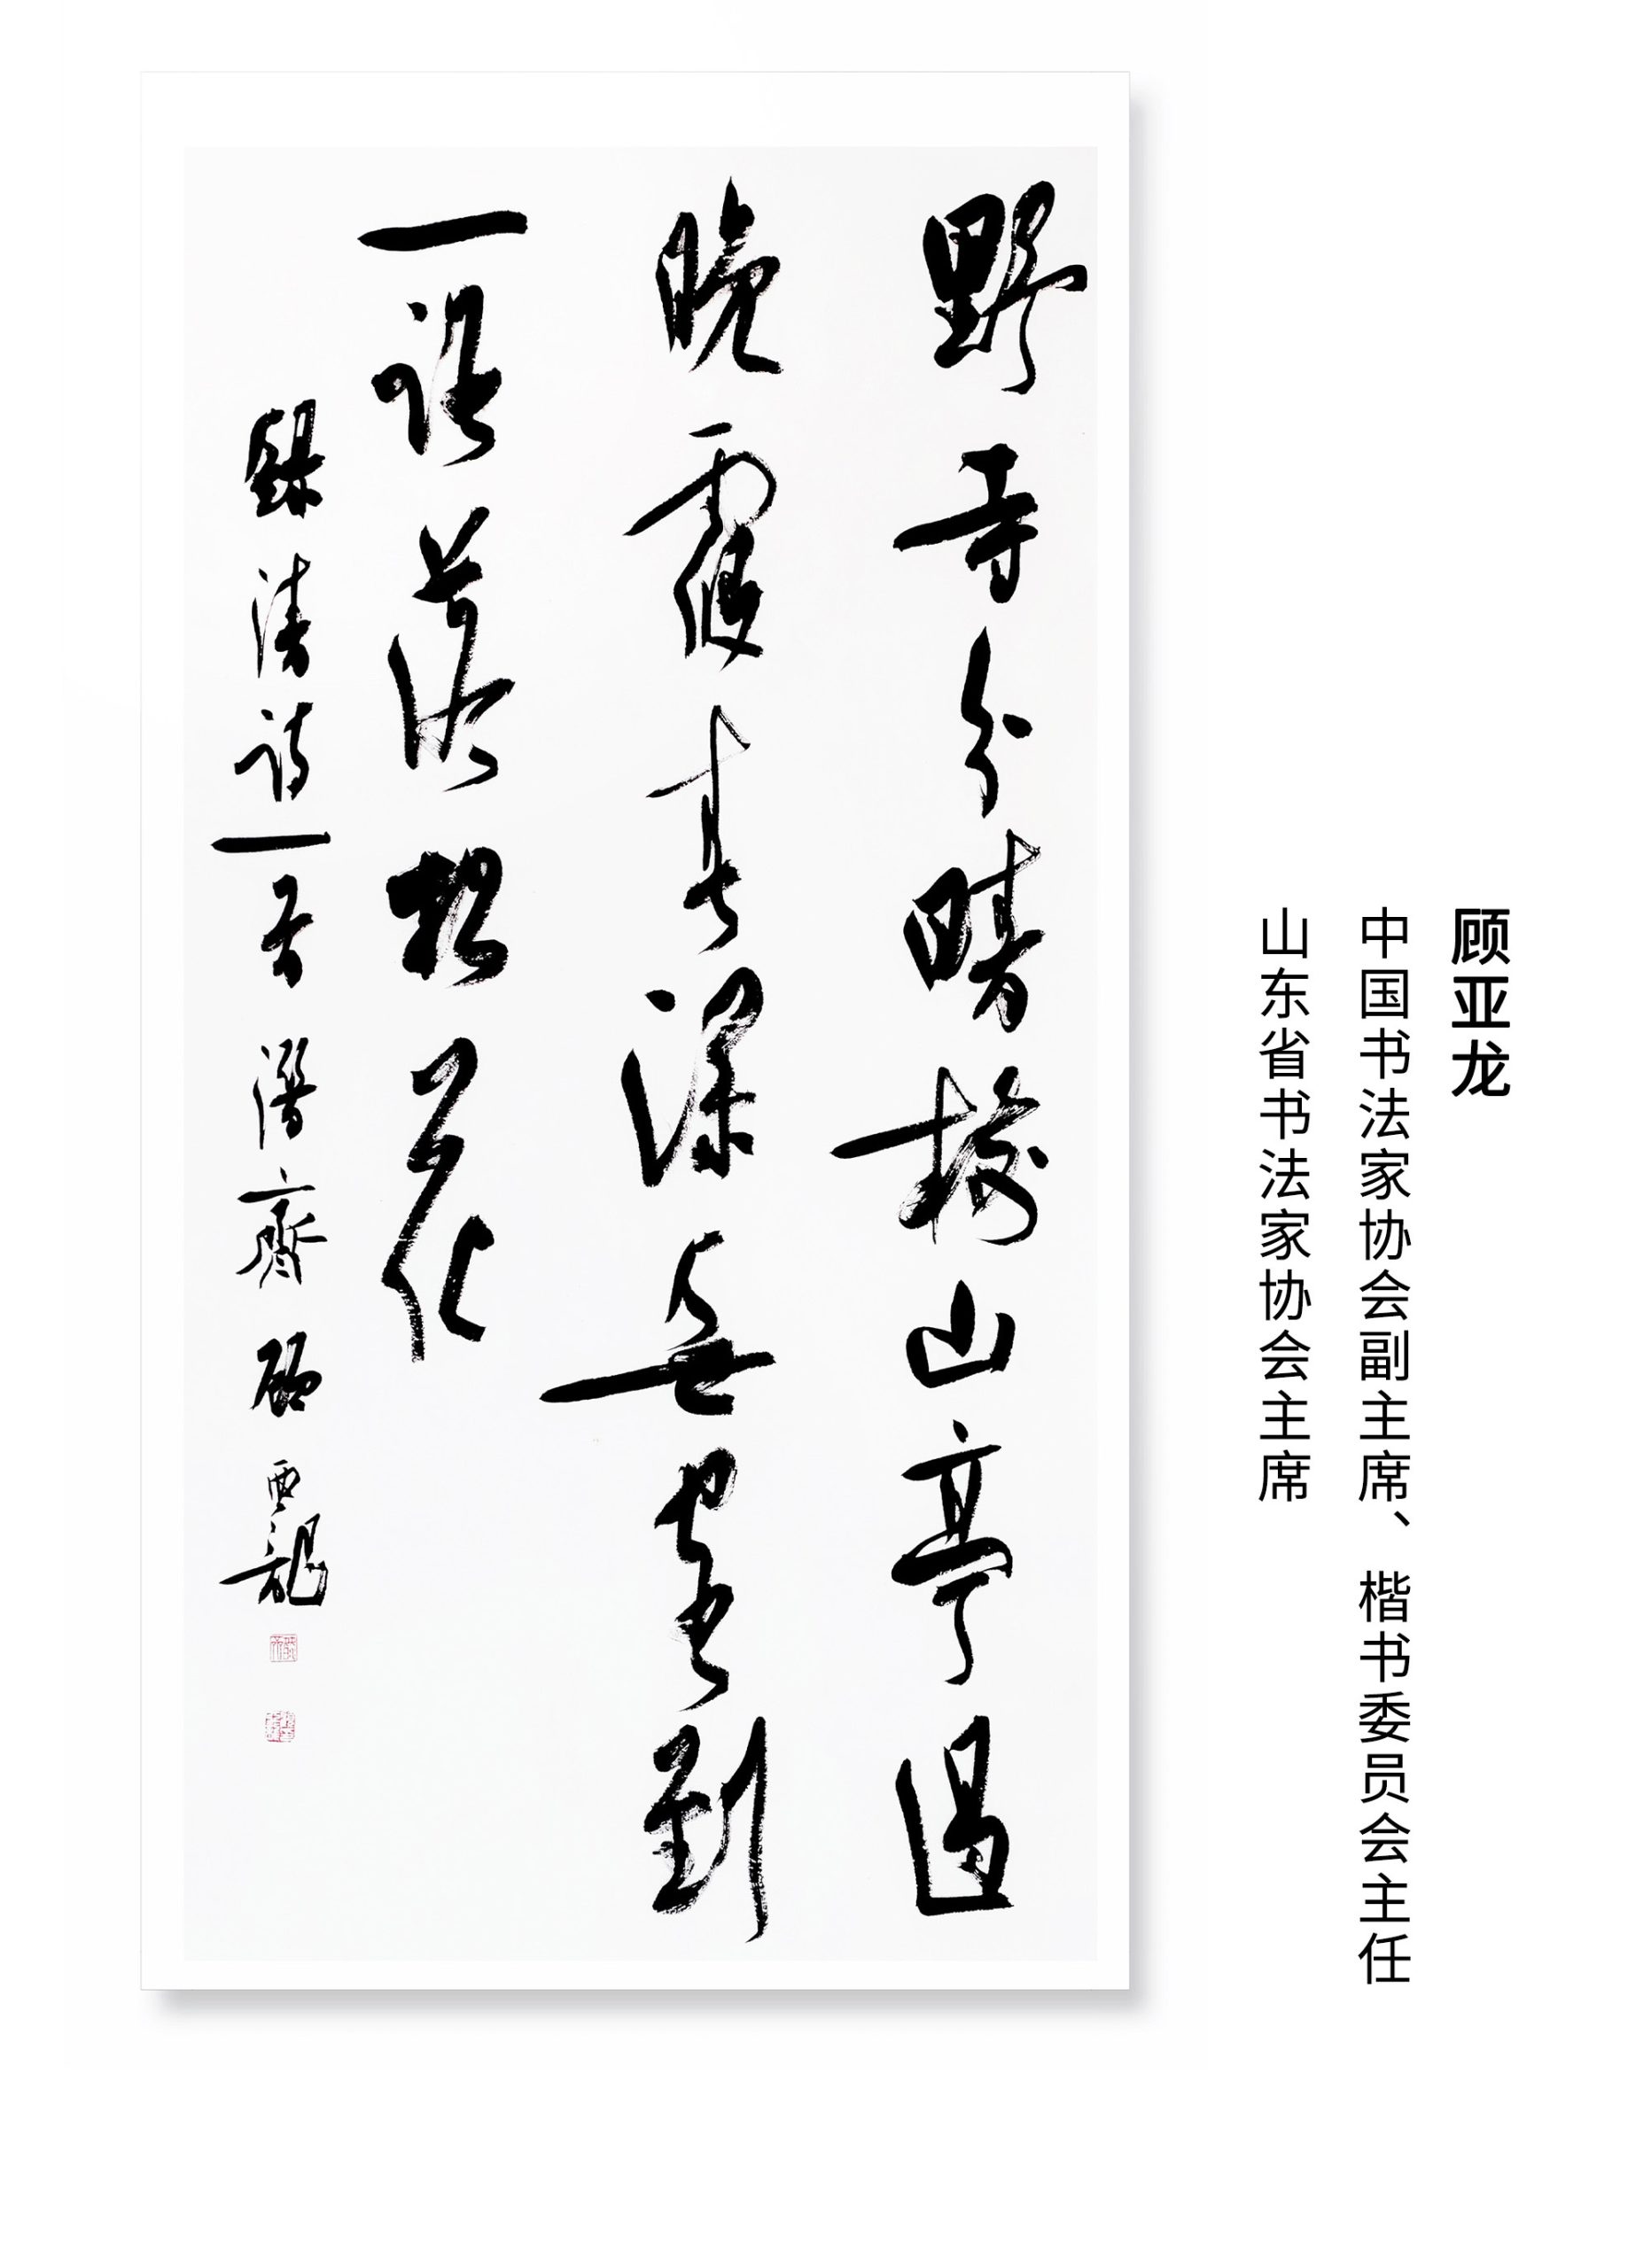 顾亚龙
中国书法家协会副主席、楷书委员会主任
山东省书法家协会主席
野寺分晴樹山亭過
晚霞春深無客到
一路落松花
録清詩一首潛齋顧亞龍